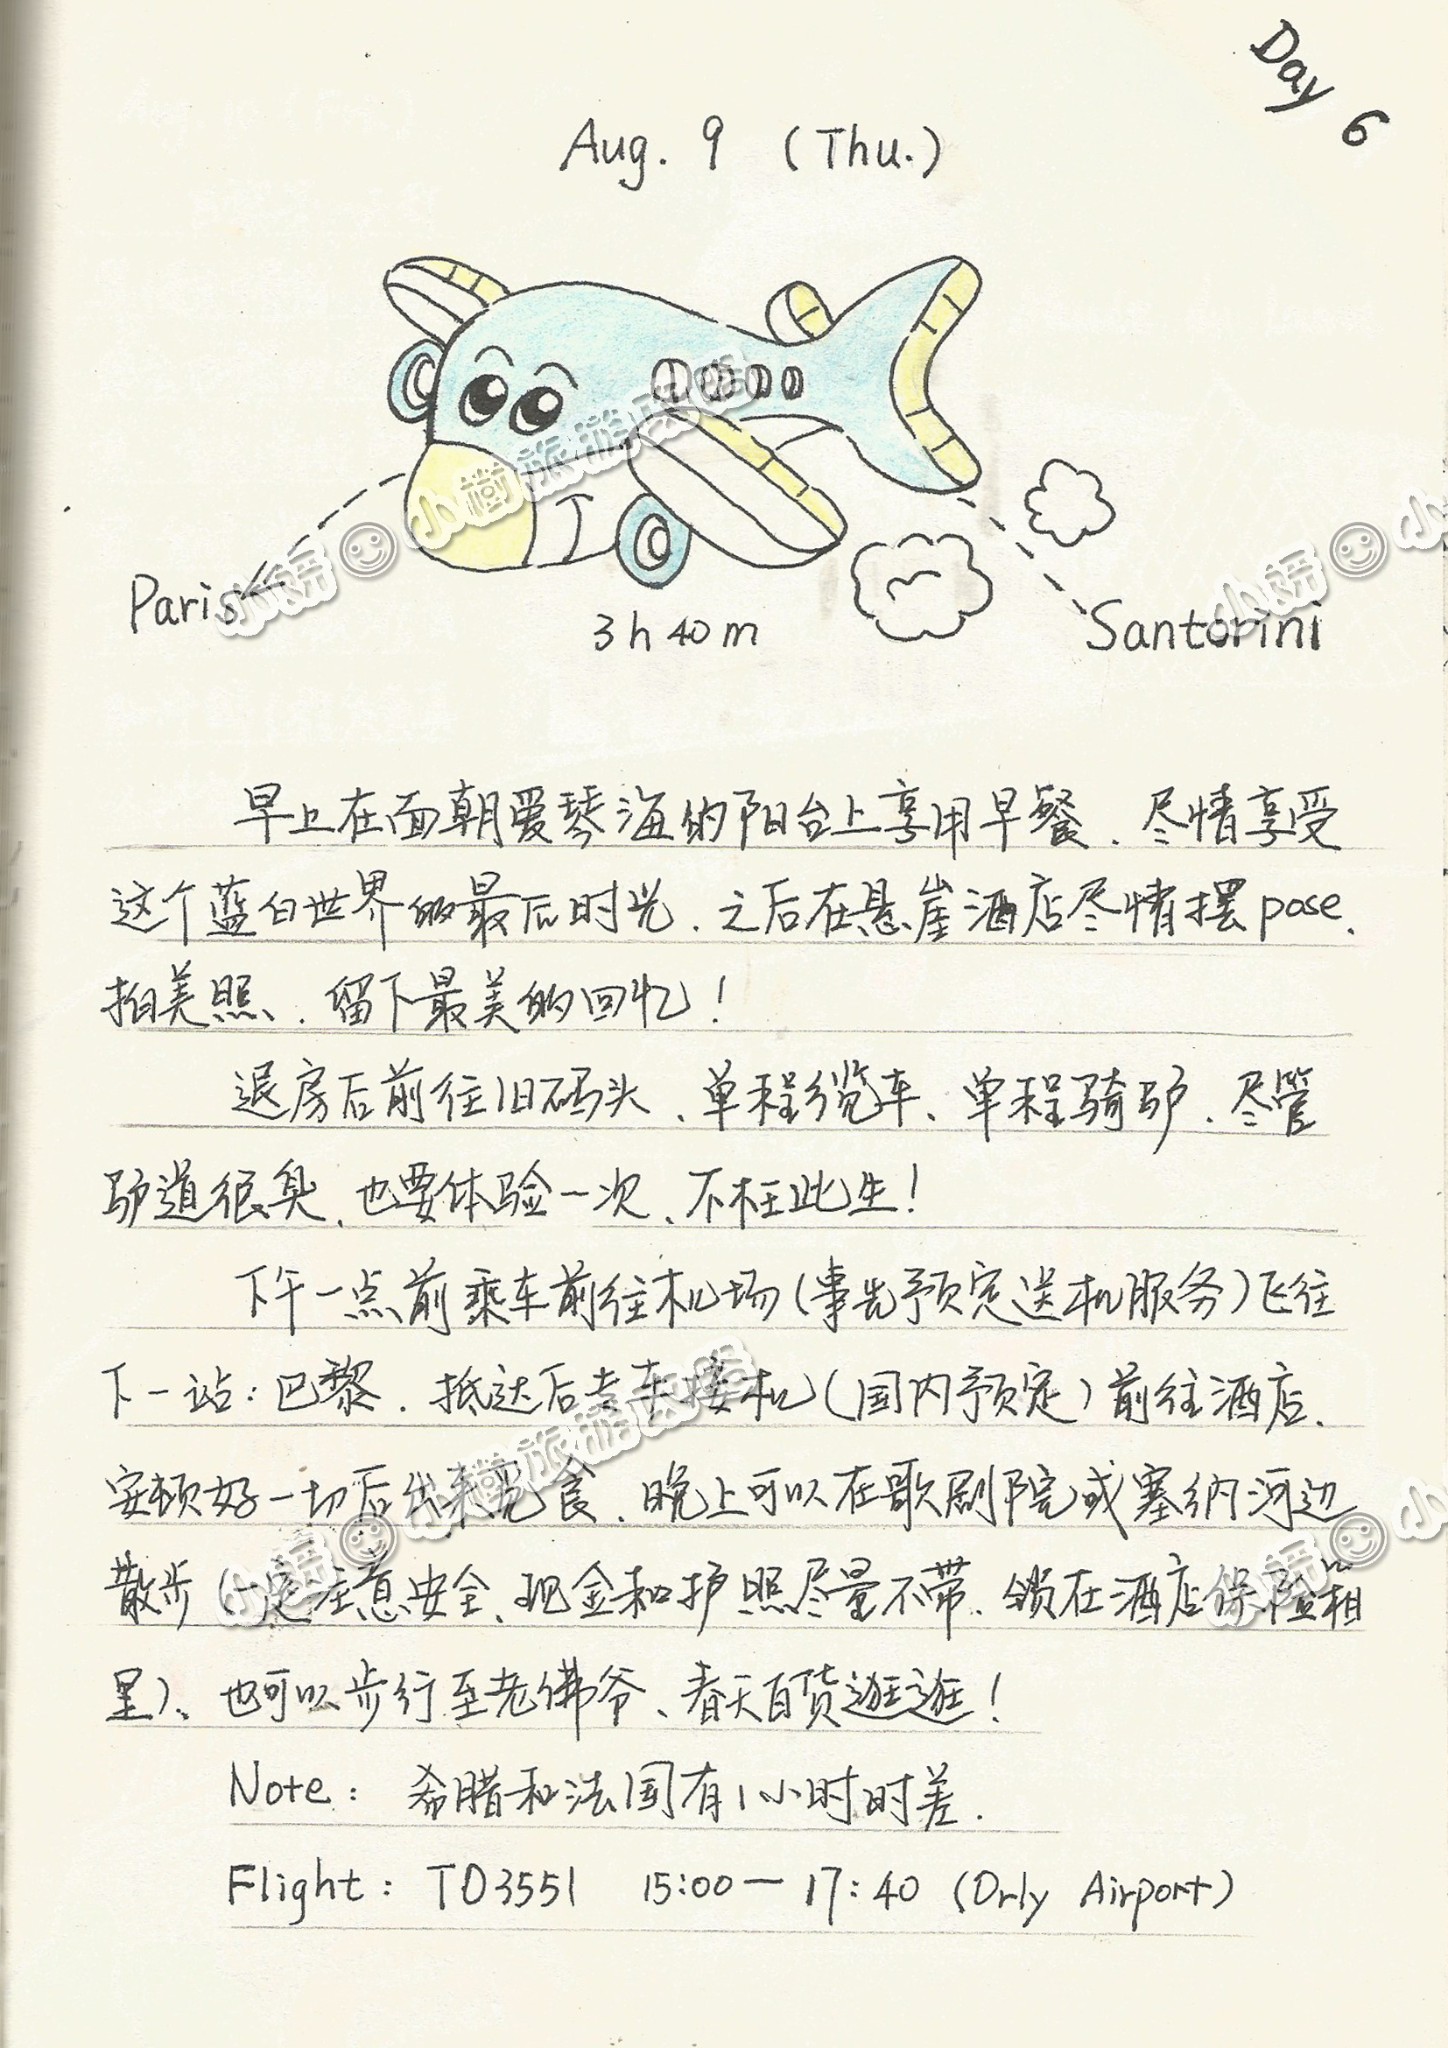 Day 6
Aug. 9 (Thu.)
Paris
3h40m
Santorini
早上在面朝爱琴海的阳台上享用早餐，尽情享受
这个蓝白世界的最后时光，之后在悬崖酒店尽情摆pose，
拍美照，留下最美的回忆！
退房后前往旧码头，单程缆车、单程骑驴，尽管
驴道很臭，也要体验一次，不枉此生！
下午一点前乘车前往机场（事先预定送机服务）飞往
下一站：巴黎．抵达后专车接机（国内预定）前往酒店．
安顿好一切后出来觅食，晚上可以在歌剧院或塞纳河边
散步（一定注意安全，现金和护照尽量不带，锁在酒店保险箱
里），也可以步行至老佛爷、春天百货逛逛！
Note：希腊和法国有1小时时差．
Flight：TO3551 15:00—17:40 (Orly Airport)
小小旅游攻略